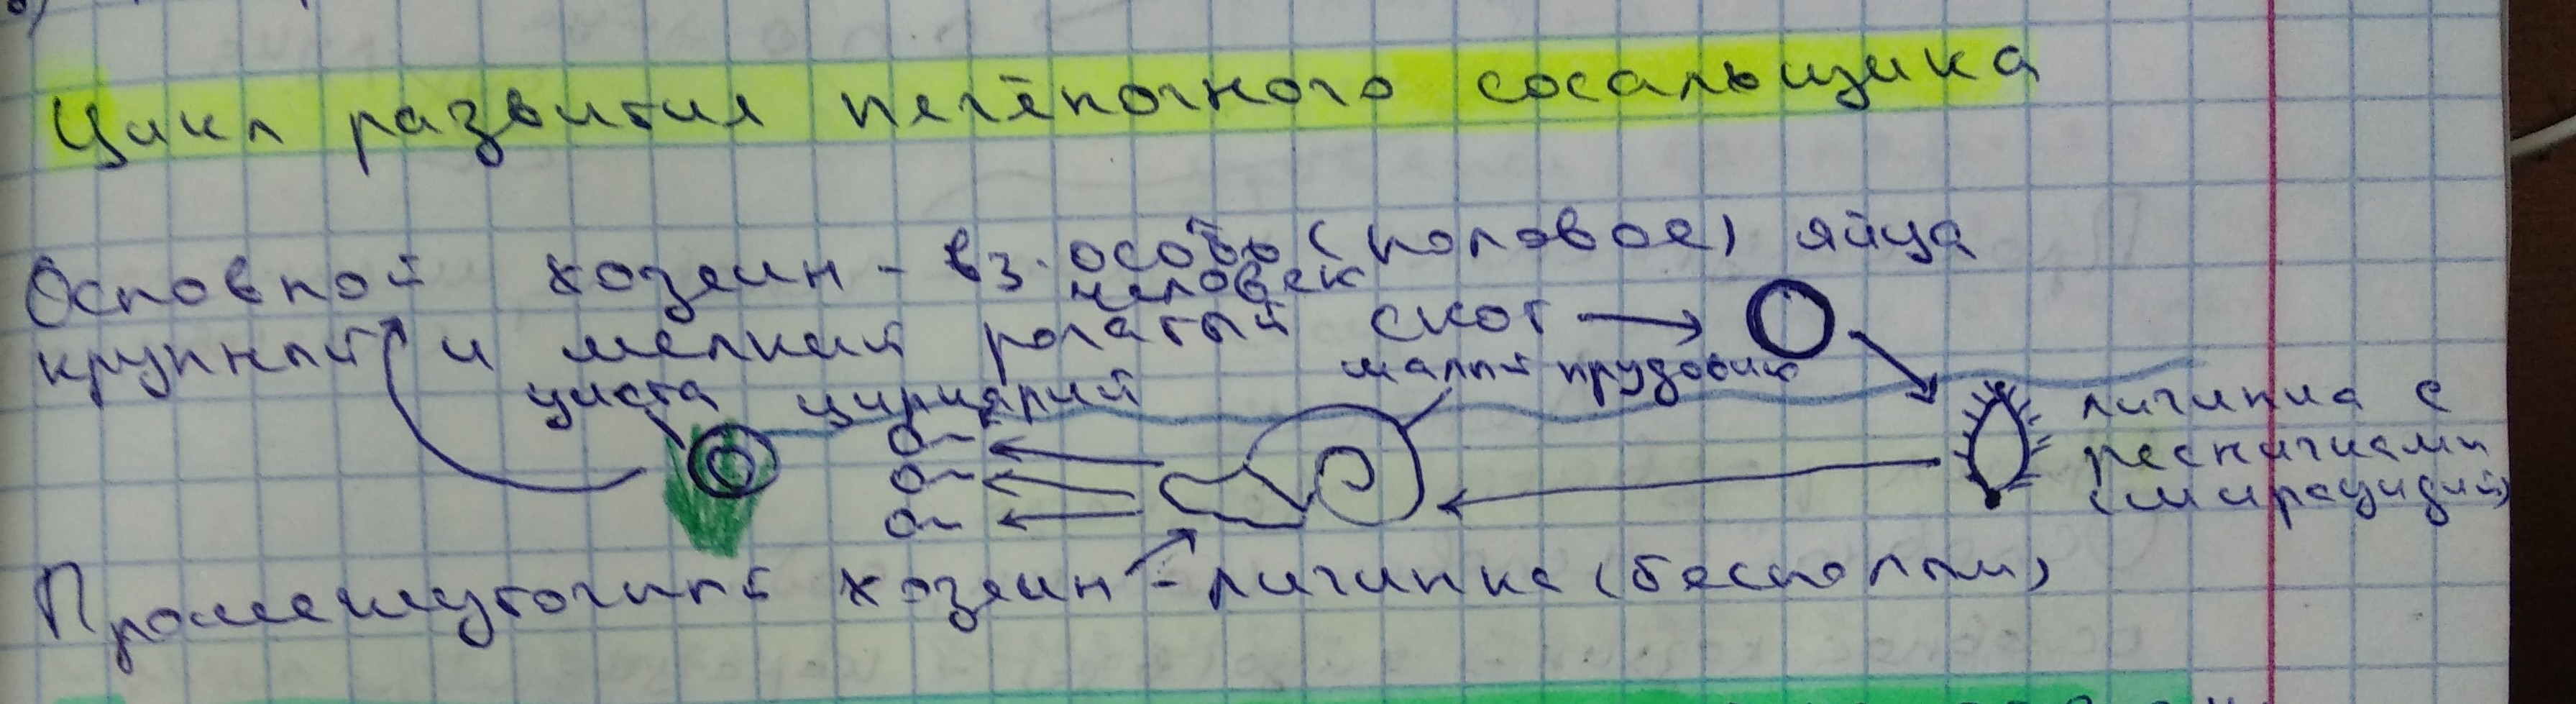 Цикл развития печёночного сосальщика
Основной хозеин - вз. особь (половое) яйца
человек
крупный и мелкий рогатый скот
малый прудовик
циста цирцярий
личинка с
ресничками
(мирацидий)
Промежуточный хозеин - личинка (бесполы)